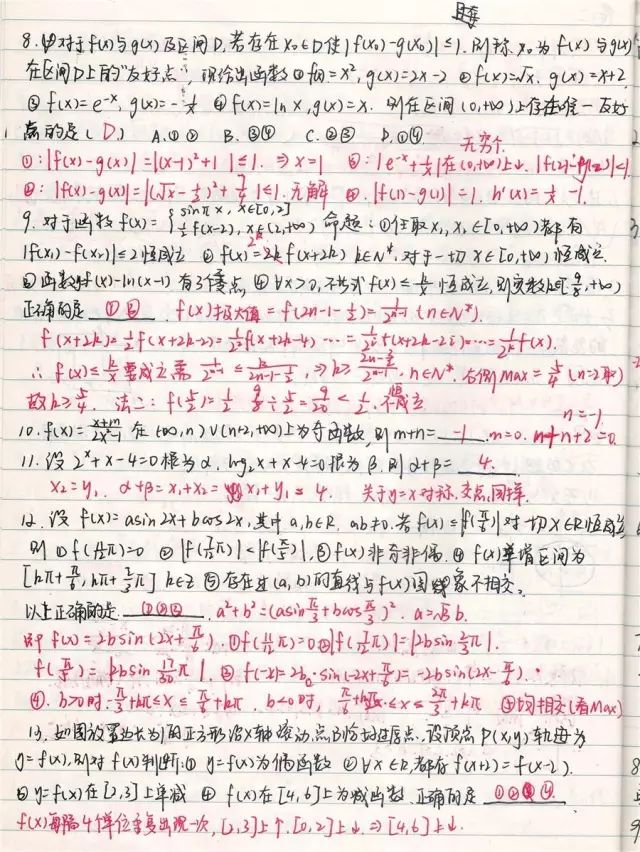 8. 对于f(x)与g(x)及区间D,若存在x₀∈D使|f(x₀)-g(x₀)|≤1.则称x₀为f(x)与g(x)
在区间D上的"友好点".现给出函数①f(x)=x², g(x)=2x-2 ②f(x)=√x, g(x)=x+2
③f(x)=e^{-x}, g(x)=-1/x ④f(x)=ln x, g(x)=x. 则在区间(0,+∞)上存在唯一友好
点的是(D) A.①② B.③④ C.②③ D.①④.
无穷个
①:|f(x)-g(x)|=|(x-1)²+1|≤1.⇒x=1 ③:|e^{-x}+1/x|在(0,+∞)上↓.
②:|f(x)-g(x)|=|(√x-1/2)²+7/4|≤1.无解 ④.|f(1)-g(1)|=1. h'(x)=1/x-1.
9. 对于函数f(x)={sinπx, x∈[0,2] 1/2f(x-2), x∈(2,+∞) 命题:①任取x₁,x₂∈[0,+∞)都有
|f(x₁)-f(x₂)|≤2恒成立 ②f(x)=2k f(x+2k) k∈N*,对于一切x∈[0,+∞)恒成立.
③函数y=f(x)-ln(x-1)有3个零点,④∀x>0,不等式f(x)≤k/x恒成立,则实数k∈[9/8,+∞)
正确的是 ①③ f(x)极大值=f(2n-1-1/2)=1/2^{n-1} (n∈N*).
f(x+2k)=1/2f(x+2k-2)=1/2²f(x+2k-4)…=1/2^i f(x+2k-2i)=…=1/2^k f(x).
∴f(x)≤k/x要成立需1/2^{n-1}≤k/(2n-1-1/2),⇒k≥(2n-3/2)/2^{n-1}, n∈N*.右侧Max=5/4(n=2取)
故k≥5/4. 法二:f(5/2)=1/2 9/8÷5/2=9/20<1/2.不成立
n=-1.
10. f(x)=(x+m)/(2x²-1) 在(-∞,n)∪(n+2,+∞)上为奇函数,则m+n= -1 .m=0. n+n+2=0.
11. 设2^x+x-4=0根为α, log₂x+x-4=0根为β.则α+β= 4.
x₂=y₁. α+β=x₁+x₂=x₁+y₁=4. 关于y=x对称.交点同样.
12. 设f(x)=asin2x+bcos2x,其中a,b∈R, ab≠0.若f(x)≤|f(π/6)|对一切x∈R恒成立
则①f(11/12π)=0 ②|f(7/12π)|<|f(π/5)|,③f(x)非奇非偶.④f(x)单增区间为
[kπ+π/6, kπ+2/3π] k∈Z ⑤存在过(a,b)的直线与f(x)图象不相交.
以上正确的是 ①②③. a²+b²=(asinπ/3+bcosπ/3)². a=√3b.
即f(x)=2bsin(2x+π/6). ①f(11/12π)=0②|f(7/12π)|=|2bsin4/3π|.
f(π/5)=|2bsin17/30π|. ③f(-x)=2b·sin(-2x+π/6)=-2bsin(2x-π/6).
④.b>0时:-π/3+kπ≤x≤π/6+kπ. b<0时, π/6+kπ≤x≤2π/3+kπ ⑤均相交(看Max)
13. 如图放置边长为1的正方形沿x轴滚动.点B恰好过原点.设顶点P(x,y)轨迹为
y=f(x),则对f(x)判断.①y=f(x)为偶函数 ②∀x∈R,都有f(x+2)=f(x-2).
③y=f(x)在[2,3]上单减 ④f(x)在[4,6]上为减函数 正确的是 ①②④
f(x)每隔4个单位重复出现一次,[2,3]上↑.[0,2]上↓.⇒[4,6]上↓.